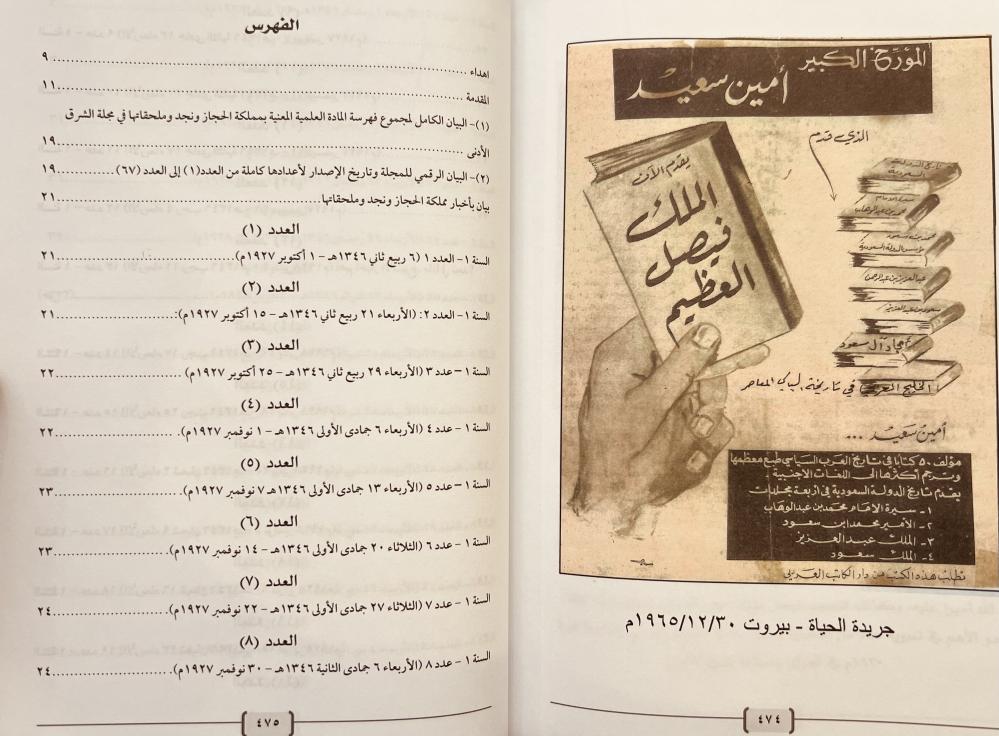 المؤرخ الكبير
أمين سعيد
الذي قدم
يقدم الآن
الملك
فيصل
العظيم
تاريخ الدولة
السعودية
سيرة الإمام
محمد بن عبد الوهاب
محمد بن سعود
مؤسس الدولة السعودية
عبد العزيز بن عبد الرحمن
سعود بن عبد العزيز
أمجاد آل سعود
الخليج العربي في تاريخه السياسي المعاصر
أمين سعيد ...
مؤلف ٥٠ كتابا في تاريخ العرب السياسي طبع معظمها
وترجم أكثرها إلى اللغات الأجنبية
يقدم تاريخ الدولة السعودية في أربعة مجلدات
١- سيرة الإمام محمد بن عبد الوهاب
٢- الأمير محمد ابن سعود
٣- الملك عبد العزيز
٤- الملك سعود
تطلب هذه الكتب من دار الكاتب العربي
جريدة الحياة - بيروت ١٩٦٥/١٢/٣٠م
٤٧٤
الفهرس
اهداء ........ ٩
المقدمة ........ ١١
(١)- البيان الكامل لمجموع فهرسة المادة العلمية المعنية بمملكة الحجاز ونجد وملحقاتها في مجلة الشرق
الأدنى ........ ١٩
(٢)- البيان الرقمي للمجلة وتاريخ الإصدار لأعدادها كاملة من العدد(١) إلى العدد (٦٧) ........ ١٩
بيان بأخبار مملكة الحجاز ونجد وملحقاتها ........ ٢١
العدد (١)
السنة ١- العدد ١ (٦ ربيع ثاني ١٣٤٦هـ - ١ أكتوبر ١٩٢٧م) ........ ٢١
العدد (٢)
السنة ١- العدد ٢: (الأربعاء ٢١ ربيع ثاني ١٣٤٦هـ - ١٥ أكتوبر ١٩٢٧م): ........ ٢١
العدد (٣)
السنة ١- عدد ٣ (الأربعاء ٢٩ ربيع ثاني ١٣٤٦هـ - ٢٥ أكتوبر ١٩٢٧م) ........ ٢٢
العدد (٤)
السنة ١- عدد ٤ (الأربعاء ٦ جمادى الأولى ١٣٤٦هـ - ١ نوفمبر ١٩٢٧م). ........ ٢٢
العدد (٥)
السنة ١- عدد ٥ (الأربعاء ١٣ جمادى الأولى ١٣٤٦هـ ٧ نوفمبر ١٩٢٧م). ........ ٢٣
العدد (٦)
السنة ١- عدد ٦ (الثلاثاء ٢٠ جمادى الأولى ١٣٤٦هـ - ١٤ نوفمبر ١٩٢٧م). ........ ٢٣
العدد (٧)
السنة ١- عدد ٧ (الثلاثاء ٢٧ جمادى الأولى ١٣٤٦هـ - ٢٢ نوفمبر ١٩٢٧م). ........ ٢٤
العدد (٨)
السنة ١- عدد ٨ (الأربعاء ٦ جمادى الثانية ١٣٤٦هـ - ٣٠ نوفمبر ١٩٢٧م). ........ ٢٤
٤٧٥